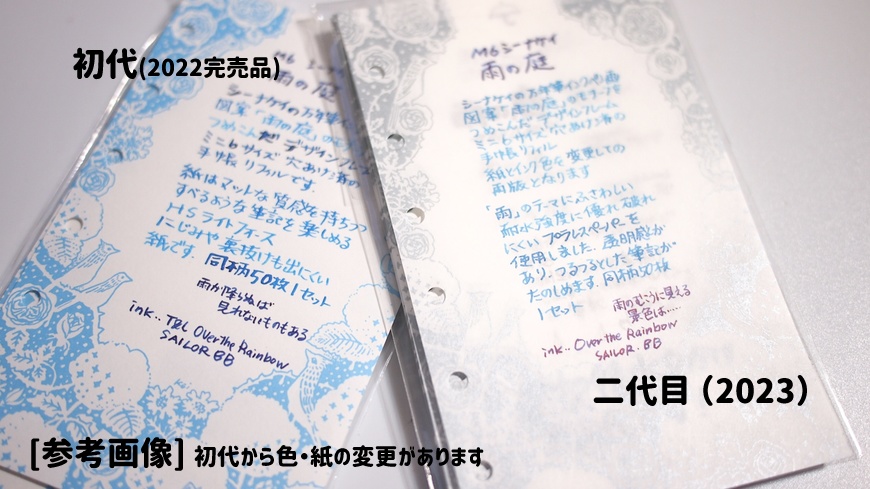 初代(2022完売品)
M6 シーナケイ
雨の庭
シーナケイの万年筆
図案「雨の庭」の
つめこんだ デザインフレーム
ミニ6サイズ 穴あけ済の
手帳リフィルです.
紙はマットな質感を持ちつつ
すべるような筆記を楽しめる
HSライトフォース
にじみや裏抜けも出にくい
紙です. 同柄50枚1セット
雨が降らねば
見れないものもある
ink.. TRL Over the Rainbow
SAILOR BB
M6シーナケイ
雨の庭
シーナケイの万年筆インク画
図案「雨の庭」のモチーフを
つめこんだ デザインフレーム
ミニ6サイズ 穴あけ済の
手帳リフィル
紙とインク色を変更しての
再版となります
「雨」のテーマにふさわしい
耐水強度に優れ 破れ
にくい プラスペーパーを
使用しました. 透明感が
あり. つるつるとした筆記が
たのしめます. 同柄50枚
1セット
雨のむこうに見える
景色は.....
ink.. Over the Rainbow
SAILOR. BB
二代目(2023)
[参考画像] 初代から色・紙の変更があります